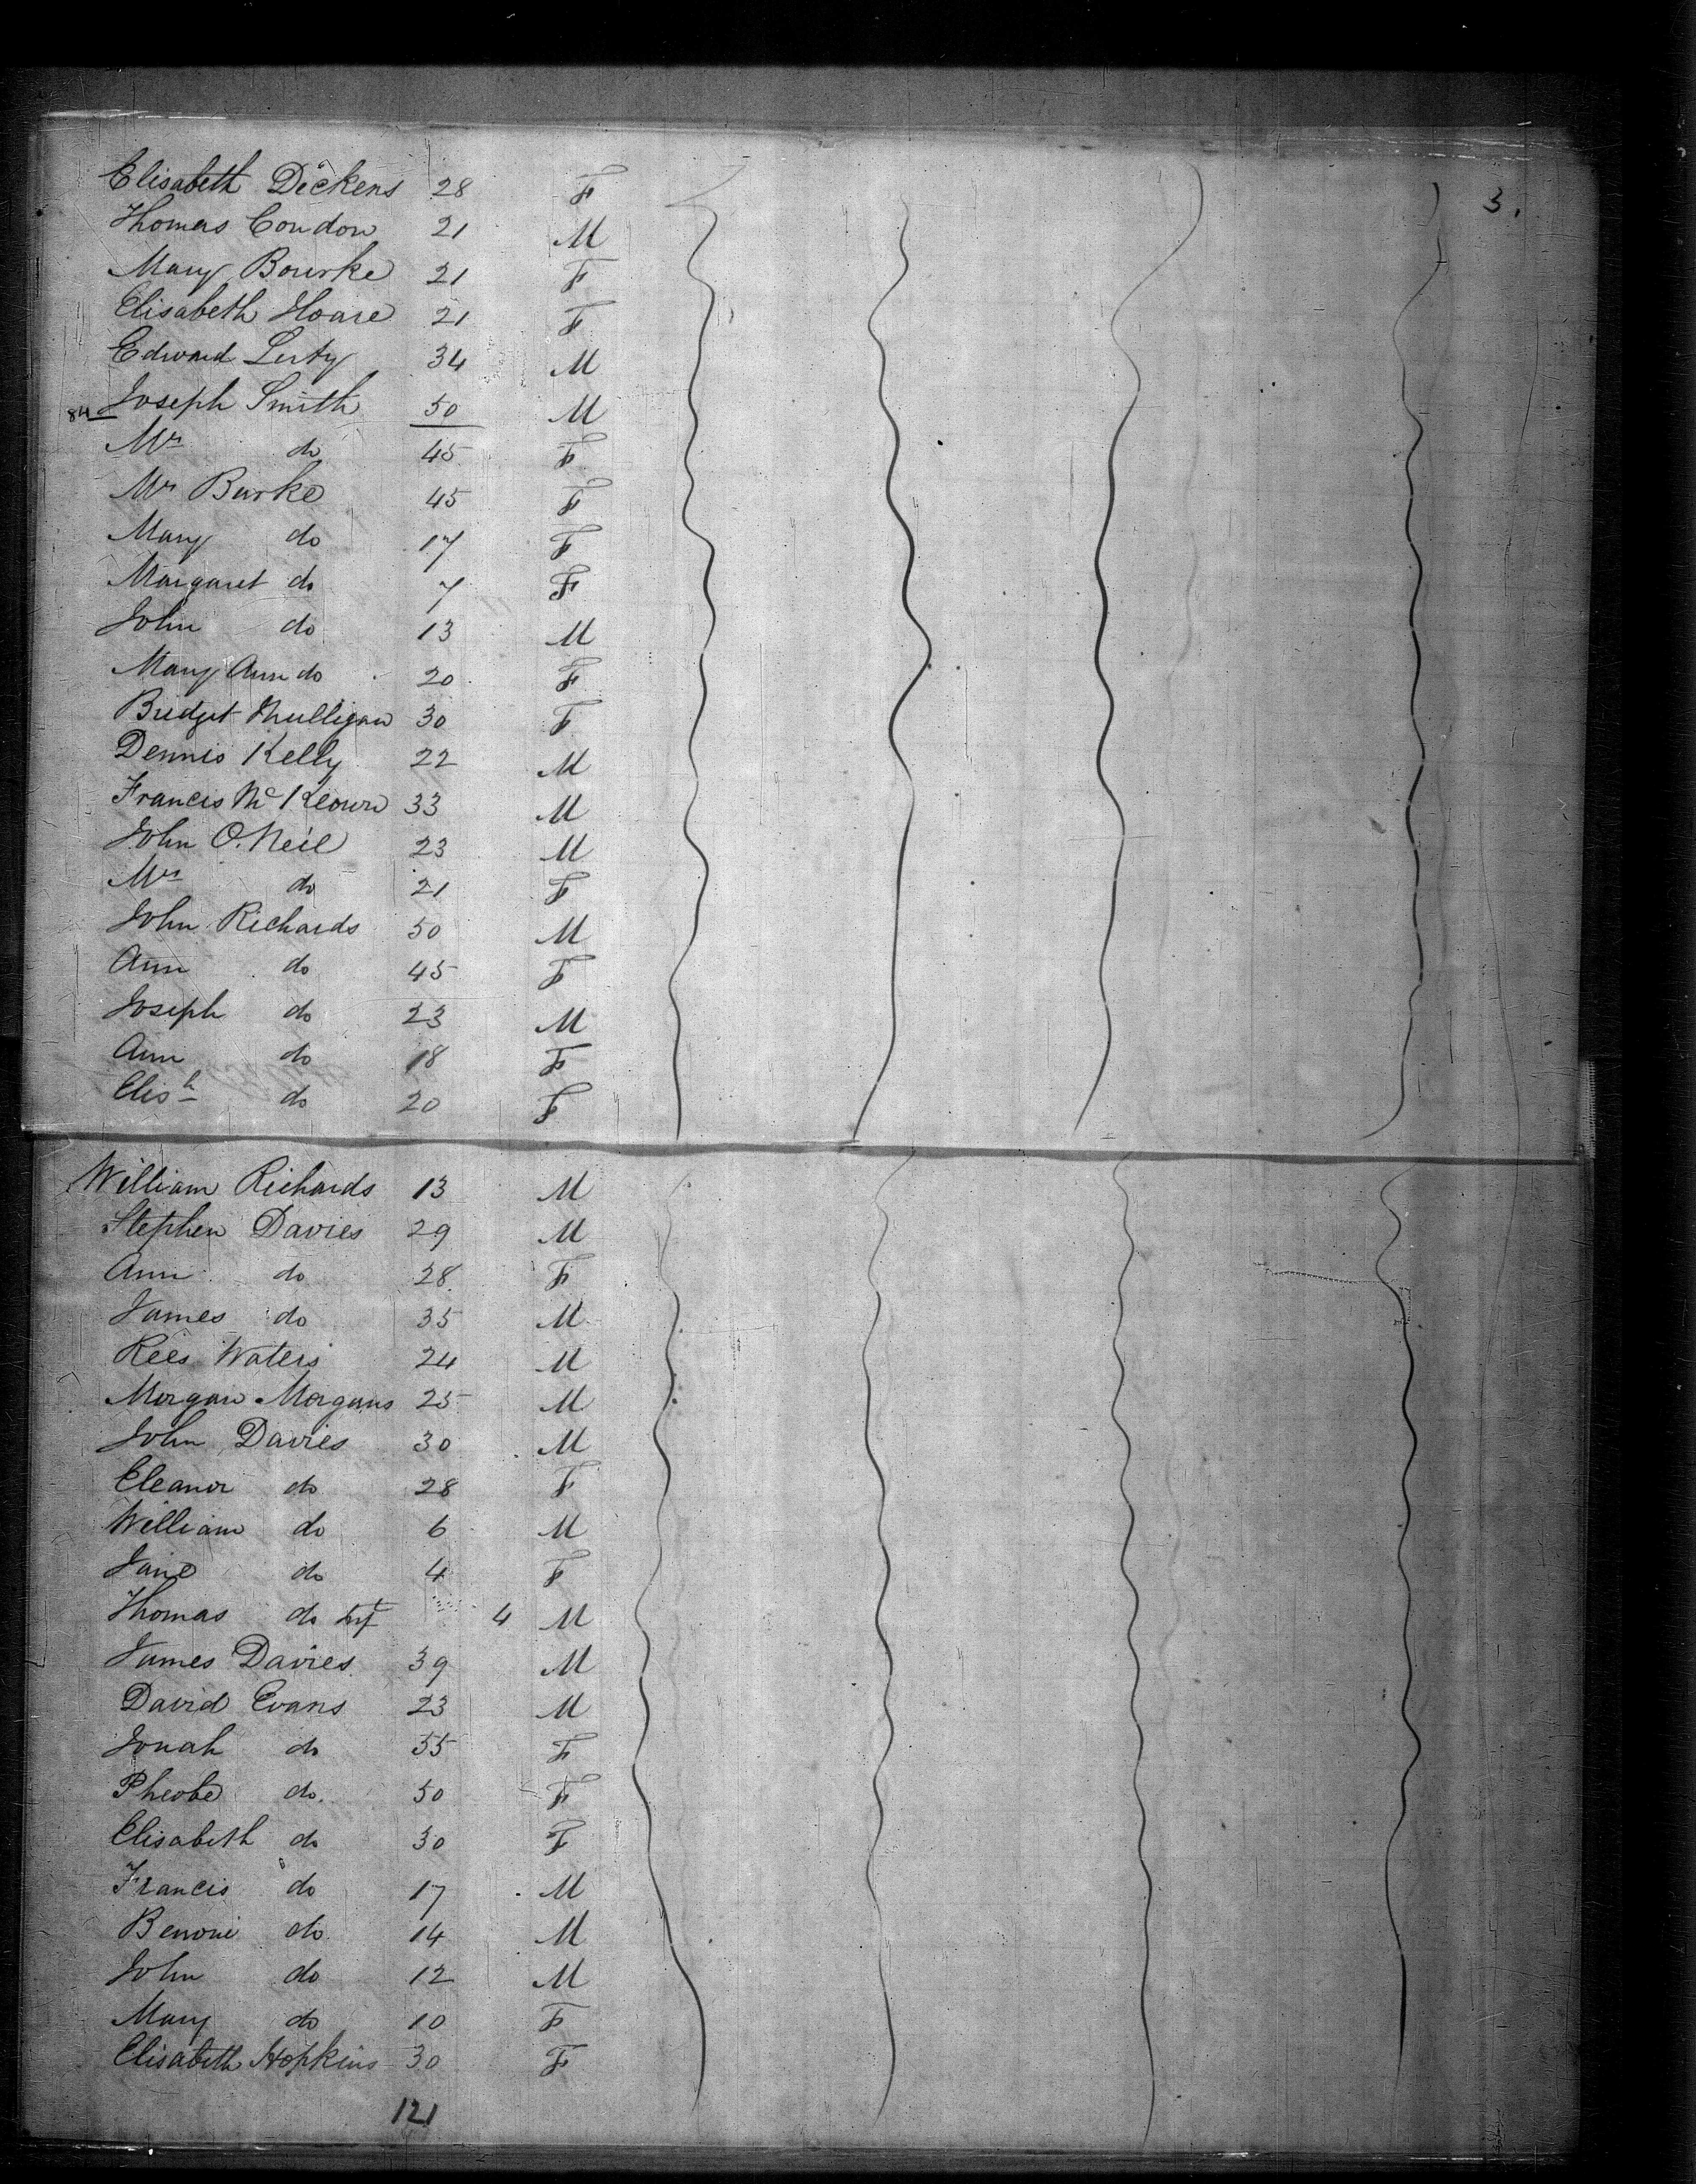 3.
Elisabeth Dickens 28 F
Thomas Condon 21 M
Mary Bourke 21 F
Elisabeth Hoare 21 F
Edward 34 M
84 Joseph Smith 50 M
Mrs do 45 F
Mrs Burke 45 F
Mary do 17 F
Margaret do 7 F
John do 13 M
Mary Ann do 20 F
Bridget Mulligan 30 F
Dennis Kelly 22 M
Francis Mc Keown 33 M
John O.Neil 23 M
Mrs do 21 F
John Richards 50 M
Ann do 45 F
Joseph do 23 M
Ann do 18 F
Elish do 20 F
William Richards 13 M
Stephen Davies 29 M
Ann do 28 F
James do 35 M
Rees Waters 24 M
Morgan Morgans 25 M
John Davies 30 M
Eleanor do 28 F
William do 6 M
Jane do 4 F
Thomas do Inft 4 M
James Davies 39 M
David Evans 23 M
Jonah do 55 F
Pheobe do. 50 F
Elisabeth do 30 F
Francis do 17 M
Benoni do 14 M
John do 12 M
Mary do 10 F
Elisabeth Hopkins 30 F
121